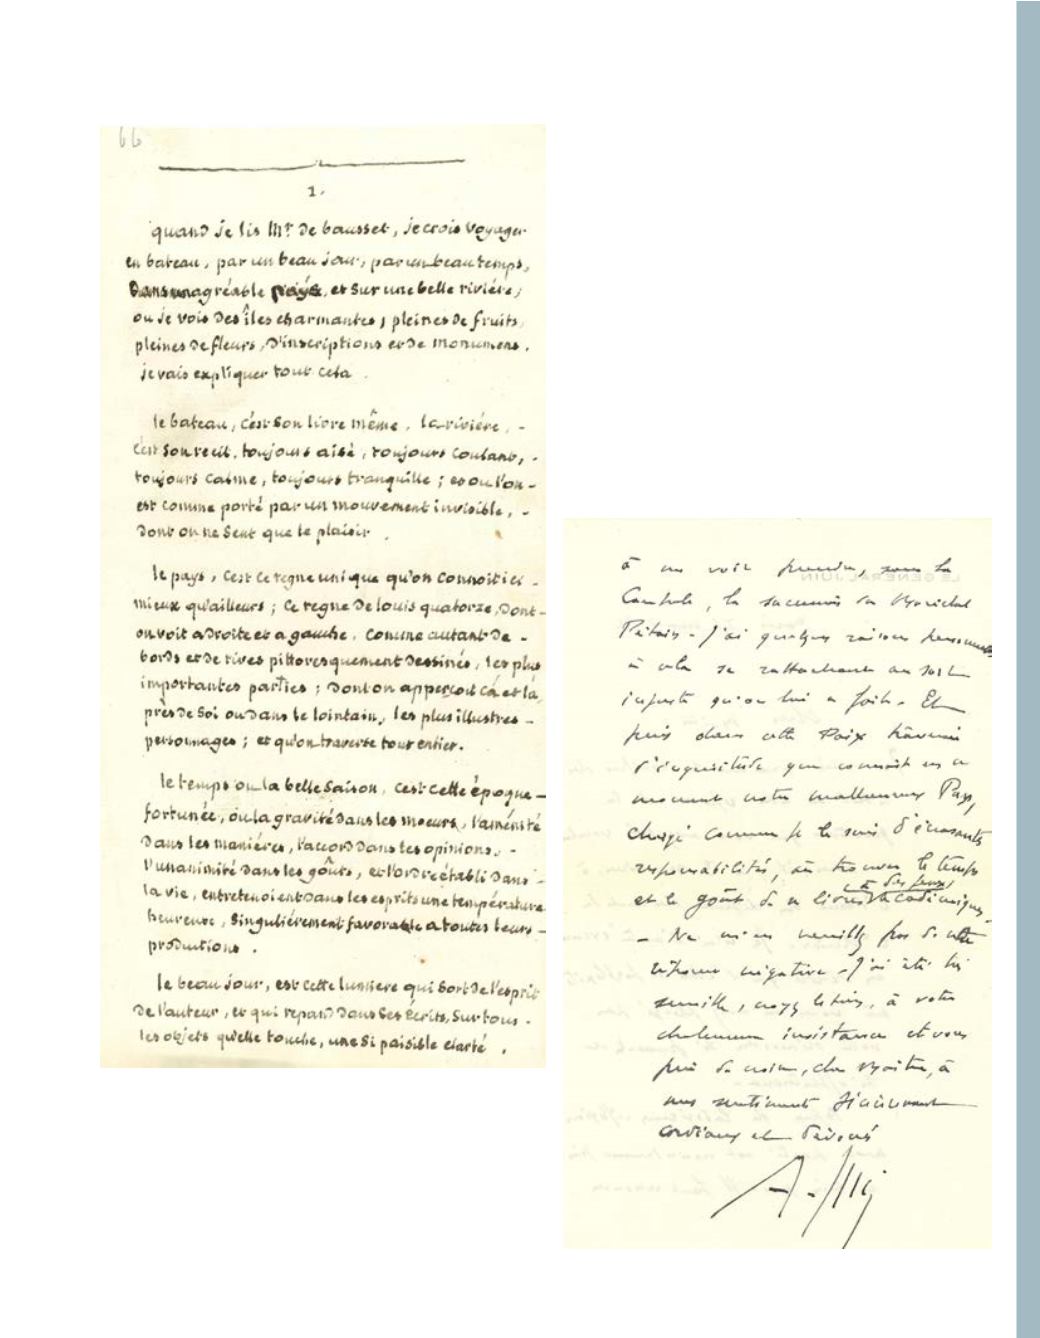 66
1.
quand je lis Mr. de bausset, je crois voyager
en bateau, par un beau jour, par un beau temps,
Dans un agréable pays, et sur une belle rivière;
ou je vois des îles charmantes, pleines de fruits,
pleines de fleurs, d'inscriptions et de monumens.
je vais expliquer tout cela.
le bateau, c'est son livre même. la rivière, -
c'est son recit, toujours aisé, toujours coulant, -
toujours calme, toujours tranquille; et ou l'on -
est comme porté par un mouvement invisible, -
dont on ne sent que le plaisir.
le pays, c'est ce regne unique qu'on connoit ici -
mieux qu'ailleurs; ce regne de louis quatorze, dont -
on voit a droite et a gauche, comme autant de -
bords et de rives pittoresquement dessinés, les plus
importantes parties; dont on apperçoit çà et là,
près de soi ou dans le lointain, les plus illustres -
personnages; et qu'on traverse tout entier.
le temps ou la belle saison, c'est cette époque -
fortunée, ou la gravité dans les moeurs, l'aménité
dans les manières, l'accord dans les opinions, -
l'unanimité dans les goûts, et l'ordre établi dans -
la vie, entretenoient dans les esprits une température
heureuse, singulièrement favorable a toutes leurs -
productions.
le beau jour, est cette lumiere qui sort de l'esprit
de l'auteur, et qui repand dans ses écrits, sur tous -
les objets qu'elle touche, une si paisible clarté.
LE GÉNÉRAL JUIN
à me voir prendre, sous la
Coupole, la succession du Maréchal
Pétain - J'ai quelques raisons personnelles
à cela se rattachant au sort
injuste qu'on lui a fait. Et
puis dans cette Paix
d'inquiétude que connait en ce
moment notre malheureux Pays,
chargé comme je le suis d'écrasantes
responsabilités, où trouver le temps
et le goût de
- Ne m'en veuillez pas de cette
réponse négative - J'ai été très
sensible, croyez le bien, à votre
chaleureuse insistance et vous
prie de croire, cher Maître, à
mes sentiments sincèrement
cordiaux et dévoués
A. Juin